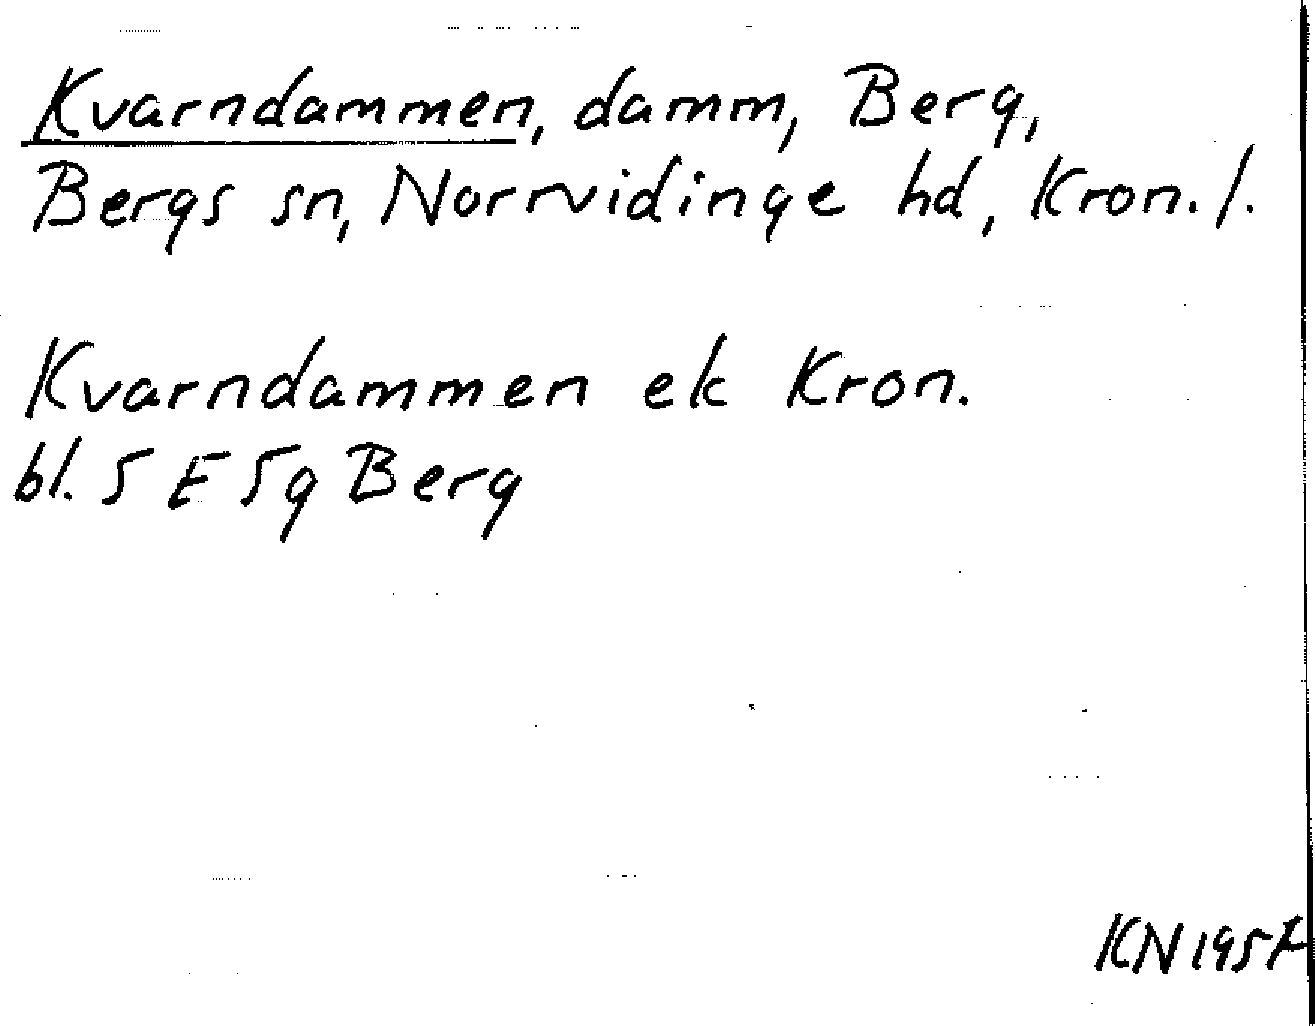 Kvarndammen, damm, Berg,
Bergs sn, Norrvidinge hd, Kron. l.
Kvarndammen ek Kron.
bl. 5 E 5g Berg
KN 1957